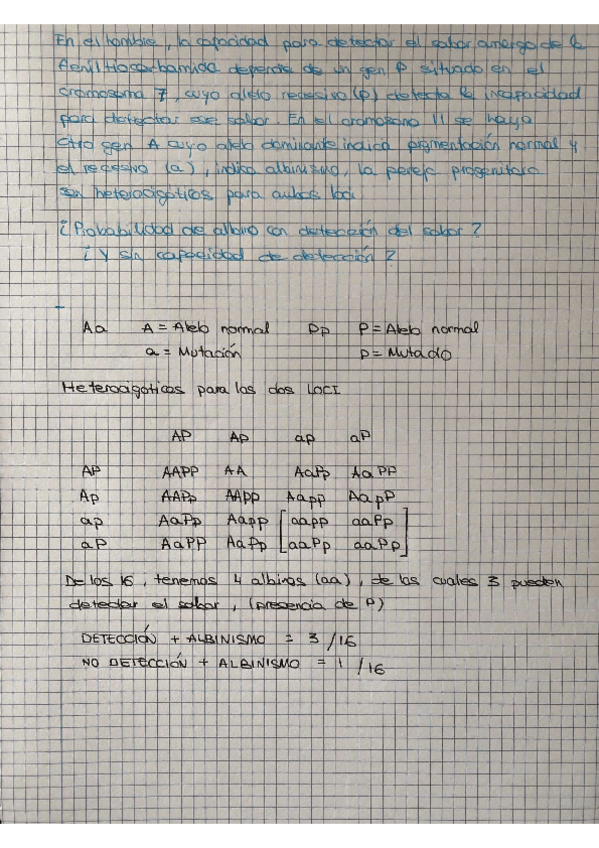 En el hombre, la capacidad para detectar el sabor amargo de la
Feniltiocarbamida depende de un gen P situado en el
cromosoma 7, cuyo alelo recesivo (p) detecta la incapacidad
para detectar ese sabor. En el cromosoma 11 se haya
otro gen A cuyo alelo dominante indica pigmentación normal y
el recesivo (a), indica albinismo, la pareja progenitora
son heterocigóticos para ambos loci.
¿Probabilidad de albino con detección del sabor?
¿Y sin capacidad de detección?
Aa A = Alelo normal Pp P = Alelo normal
a = Mutación p = Mutado
Heterocigóticos para los dos LOCI
AP Ap ap aP
AP AAPP AA AaPp AaPP
Ap AAPp AApp Aapp AapP
ap AaPp Aapp [aapp aaPp]
aP AaPP AaPp [aaPp aaPp]
De los 16, tenemos 4 albinos (aa), de las cuales 3 pueden
detectar el sabor, (presencia de P)
DETECCIÓN + ALBINISMO = 3/16
NO DETECCIÓN + ALBINISMO = 1/16